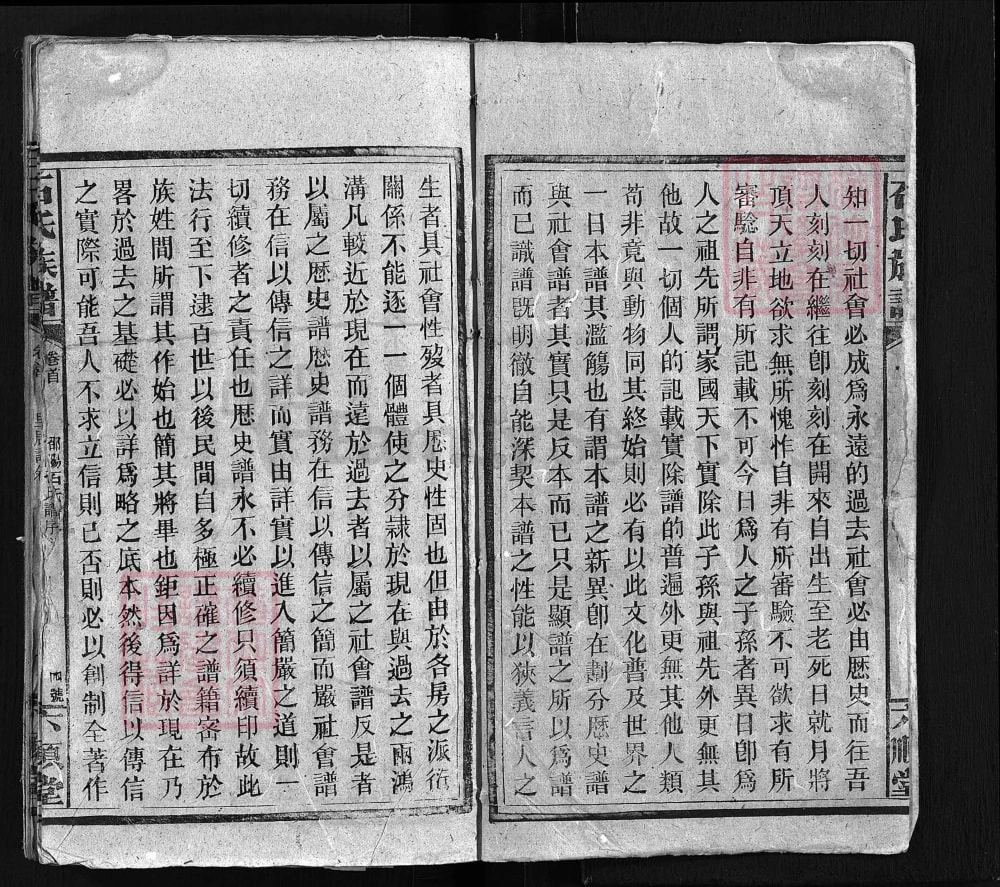 石氏族譜
六順堂
知一切社會必成爲永遠的過去社會必由歷史而往吾
人刻刻在繼往卽刻刻在開來自出生至老死日就月將
頂天立地欲求無所愧怍自非有所審驗不可欲求有所
審驗自非有所記載不可今日爲人之子孫者異日卽爲
人之祖先所謂家國天下實除此子孫與祖先外更無其
他故一切個人的記載實除譜的普遍外更無其他人類
苟非竟與動物同其終始則必有以此文化普及世界之
一日本譜其濫觴也有謂本譜之新異卽在劃分歷史譜
與社會譜者其實只是反本而已只是顯譜之所以爲譜
而已識譜旣明徹自能深契本譜之性能以狹義言人之
生者具社會性歿者具歷史性固也但由於各房之派衍
關係不能逐一一個體使之分隸於現在與過去之兩鴻
溝凡較近於現在而遠於過去者以屬之社會譜反是者
以屬之歷史譜歷史譜務在信以傳信之簡而嚴社會譜
務在信以傳信之詳而實由詳實以進入簡嚴之道則一
切續修者之責任也歷史譜永不必續修只須續印故此
法行至下逮百世以後民間自多極正確之譜籍密布於
族姓間所謂其作始也簡其將畢也鉅因爲詳於現在乃
畧於過去之基礎必以詳爲略之底本然後得信以傳信
之實際可能吾人不求立信則已否則必以創制全著作
石氏族譜
卷首
邵陽石氏譜序
四號
六順堂